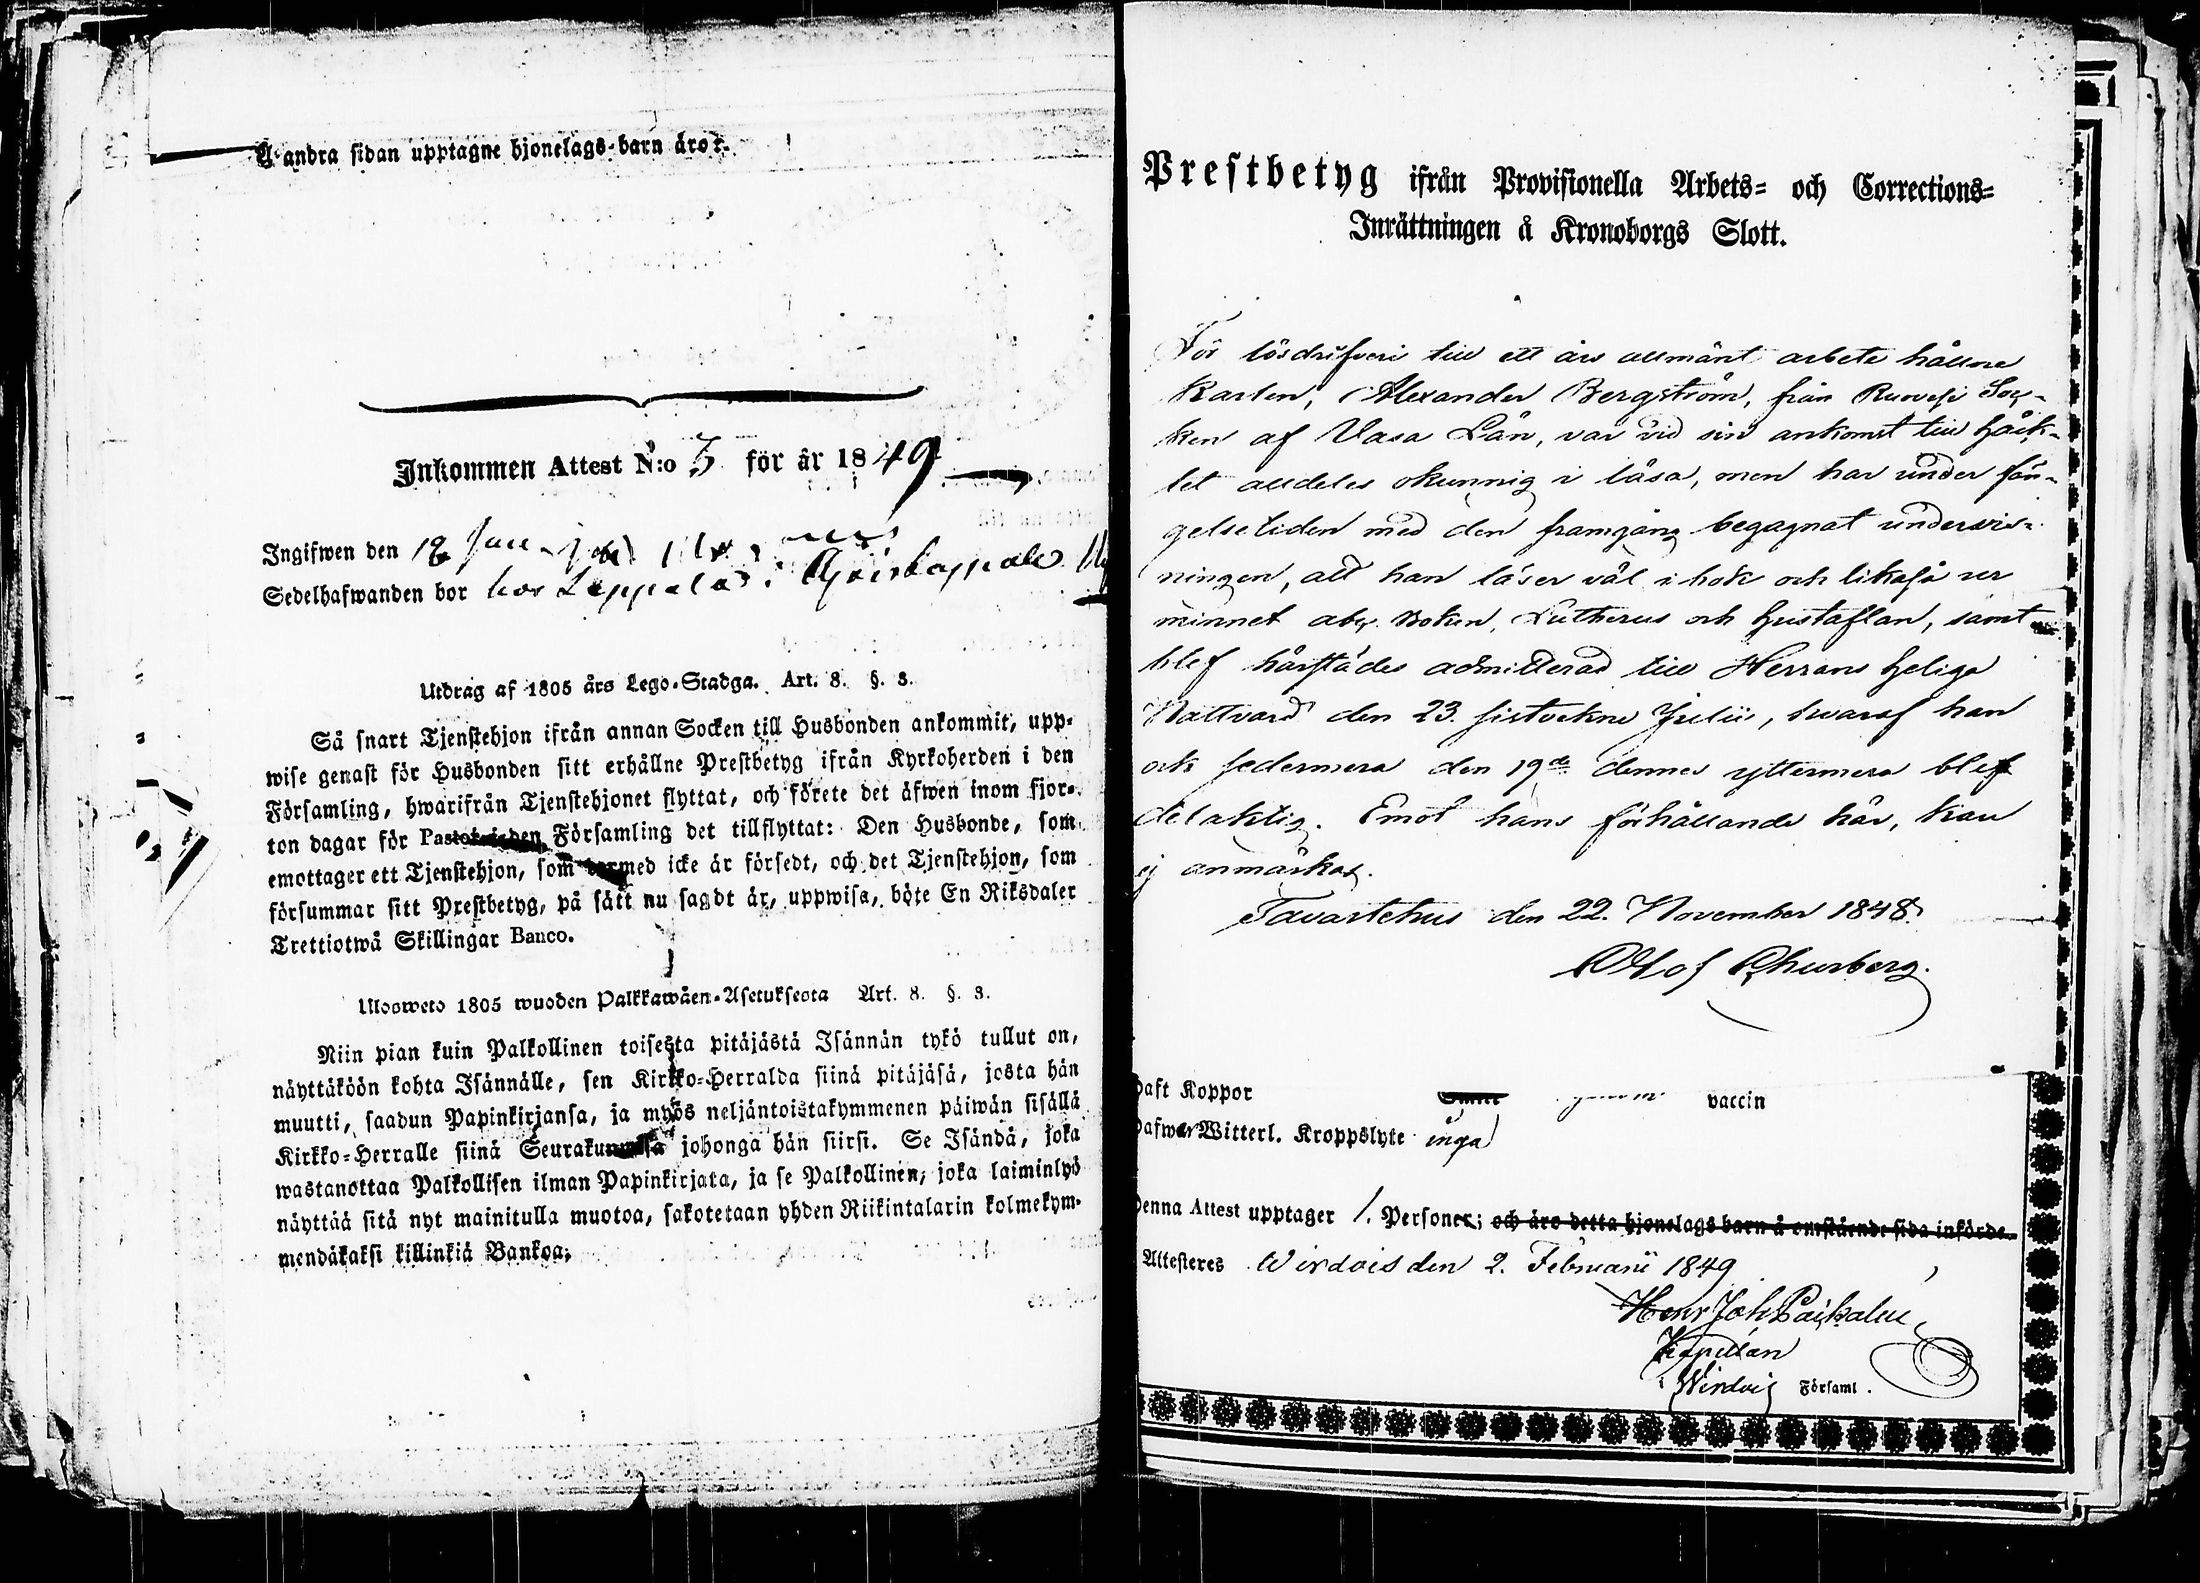 Å andra sidan upptagne hjonelags-barn äro:
Inkommen Attest N:o 3 för år 1849
Ingifwen den 18 Jan
Sedelhafwanden bor hos Leppälä i
Utdrag af 1805 års Lego-Stadga. Art. 8. §. 3.
Så snart Tjenstehjon ifrån annan Socken till Husbonden ankommit, upp-
wise genast för Husbonden sitt erhållne Prestbetyg ifrån Kyrkoherden i den
Församling, hwarifrån Tjenstehjonet flyttat, och förete det äfwen inom fjor-
ton dagar för Pastor i den Församling det tillflyttat: Den Husbonde, som
emottager ett Tjenstehjon, som dermed icke är försedt, och det Tjenstehjon, som
försummar sitt Prestbetyg, på sätt nu sagdt är, uppwisa, böte En Riksdaler
Trettiotwå Skillingar Banco.
Ulosweto 1805 wuoden Palkkawäen-Asetuksesta Art. 8. §. 3.
Niin pian kuin Palkollinen toisesta pitäjästä Isännän tykö tullut on,
näyttäköön kohta Isännälle, sen Kirkko-Herralda siinä pitäjäsä, josta hän
muutti, saadun Papinkirjansa, ja myös neljäntoistakymmenen päiwän sisällä
Kirkko-Herralle siinä Seurakunnassa johonga hän siirsi. Se Isändä, joka
wastanottaa Palkollisen ilman Papinkirjata, ja se Palkollinen, joka laiminlyö
näyttää sitä nyt mainitulla muotoa, sakotetaan yhden Riikintalarin kolmekym-
mendäkaksi killinkiä Bankoa.
Prestbetyg ifrån Provisionella Arbets- och Corrections-
Inrättningen å Kronoborgs Slott.
För lösdrifveri till ett års allmänt arbete hållne
Karlen, Alexander Bergström, från Ruovesi Soc-
ken af Vasa Län, var vid sin ankomst till häck-
tet alldeles okunnig i läsa, men har under fän-
gelsetiden med den framgång begagnat undervis-
ningen, att han läser väl i bok och likaså ur
minnet abc Boken, Lutherus och Hustaflan, samt
blef härstädes admitterad till Herrans Heliga
Nattvard den 23. sistvekne Julii, hvaraf han
och sedermera den 19de dennes yttermera blef
delaktig. Emot hans förhållande här, kan
ej anmärkas.
Tavastehus den 22. November 1848.
Olof Churberg.
Haft Koppor vaccin
Hafwer Witterl. Kroppslyte inga
Denna Attest upptager 1. Personer; och äro detta hjonelags barn å omstående sida införde.
Attesteres Wirdois den 2. Februarii 1849
Henr Joh
Kapellan
i Wirdois Församl.